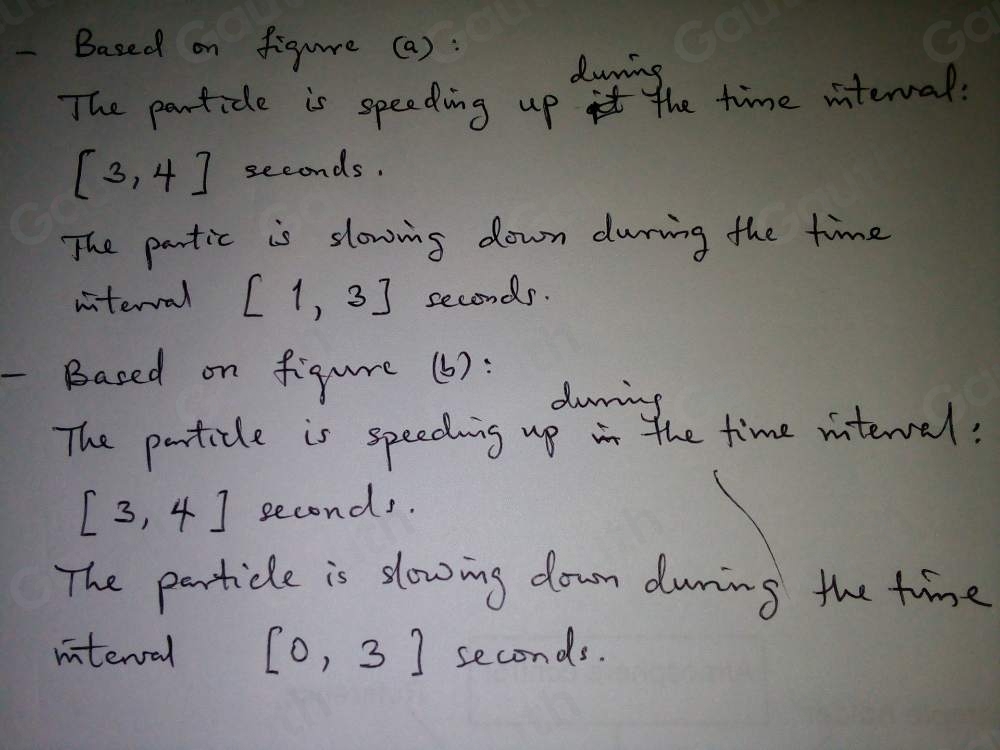 - Based on figure (a) :
during
The particle is speeding up the time interval:
[ 3, 4 ] seconds.
The partic is slowing down during the time
interval [ 1, 3 ] seconds.
- Based on figure (b) :
during
The particle is speeding up in the time interval:
[ 3, 4 ] seconds.
The particle is slowing down during the time
interval [ 0, 3 ] seconds.